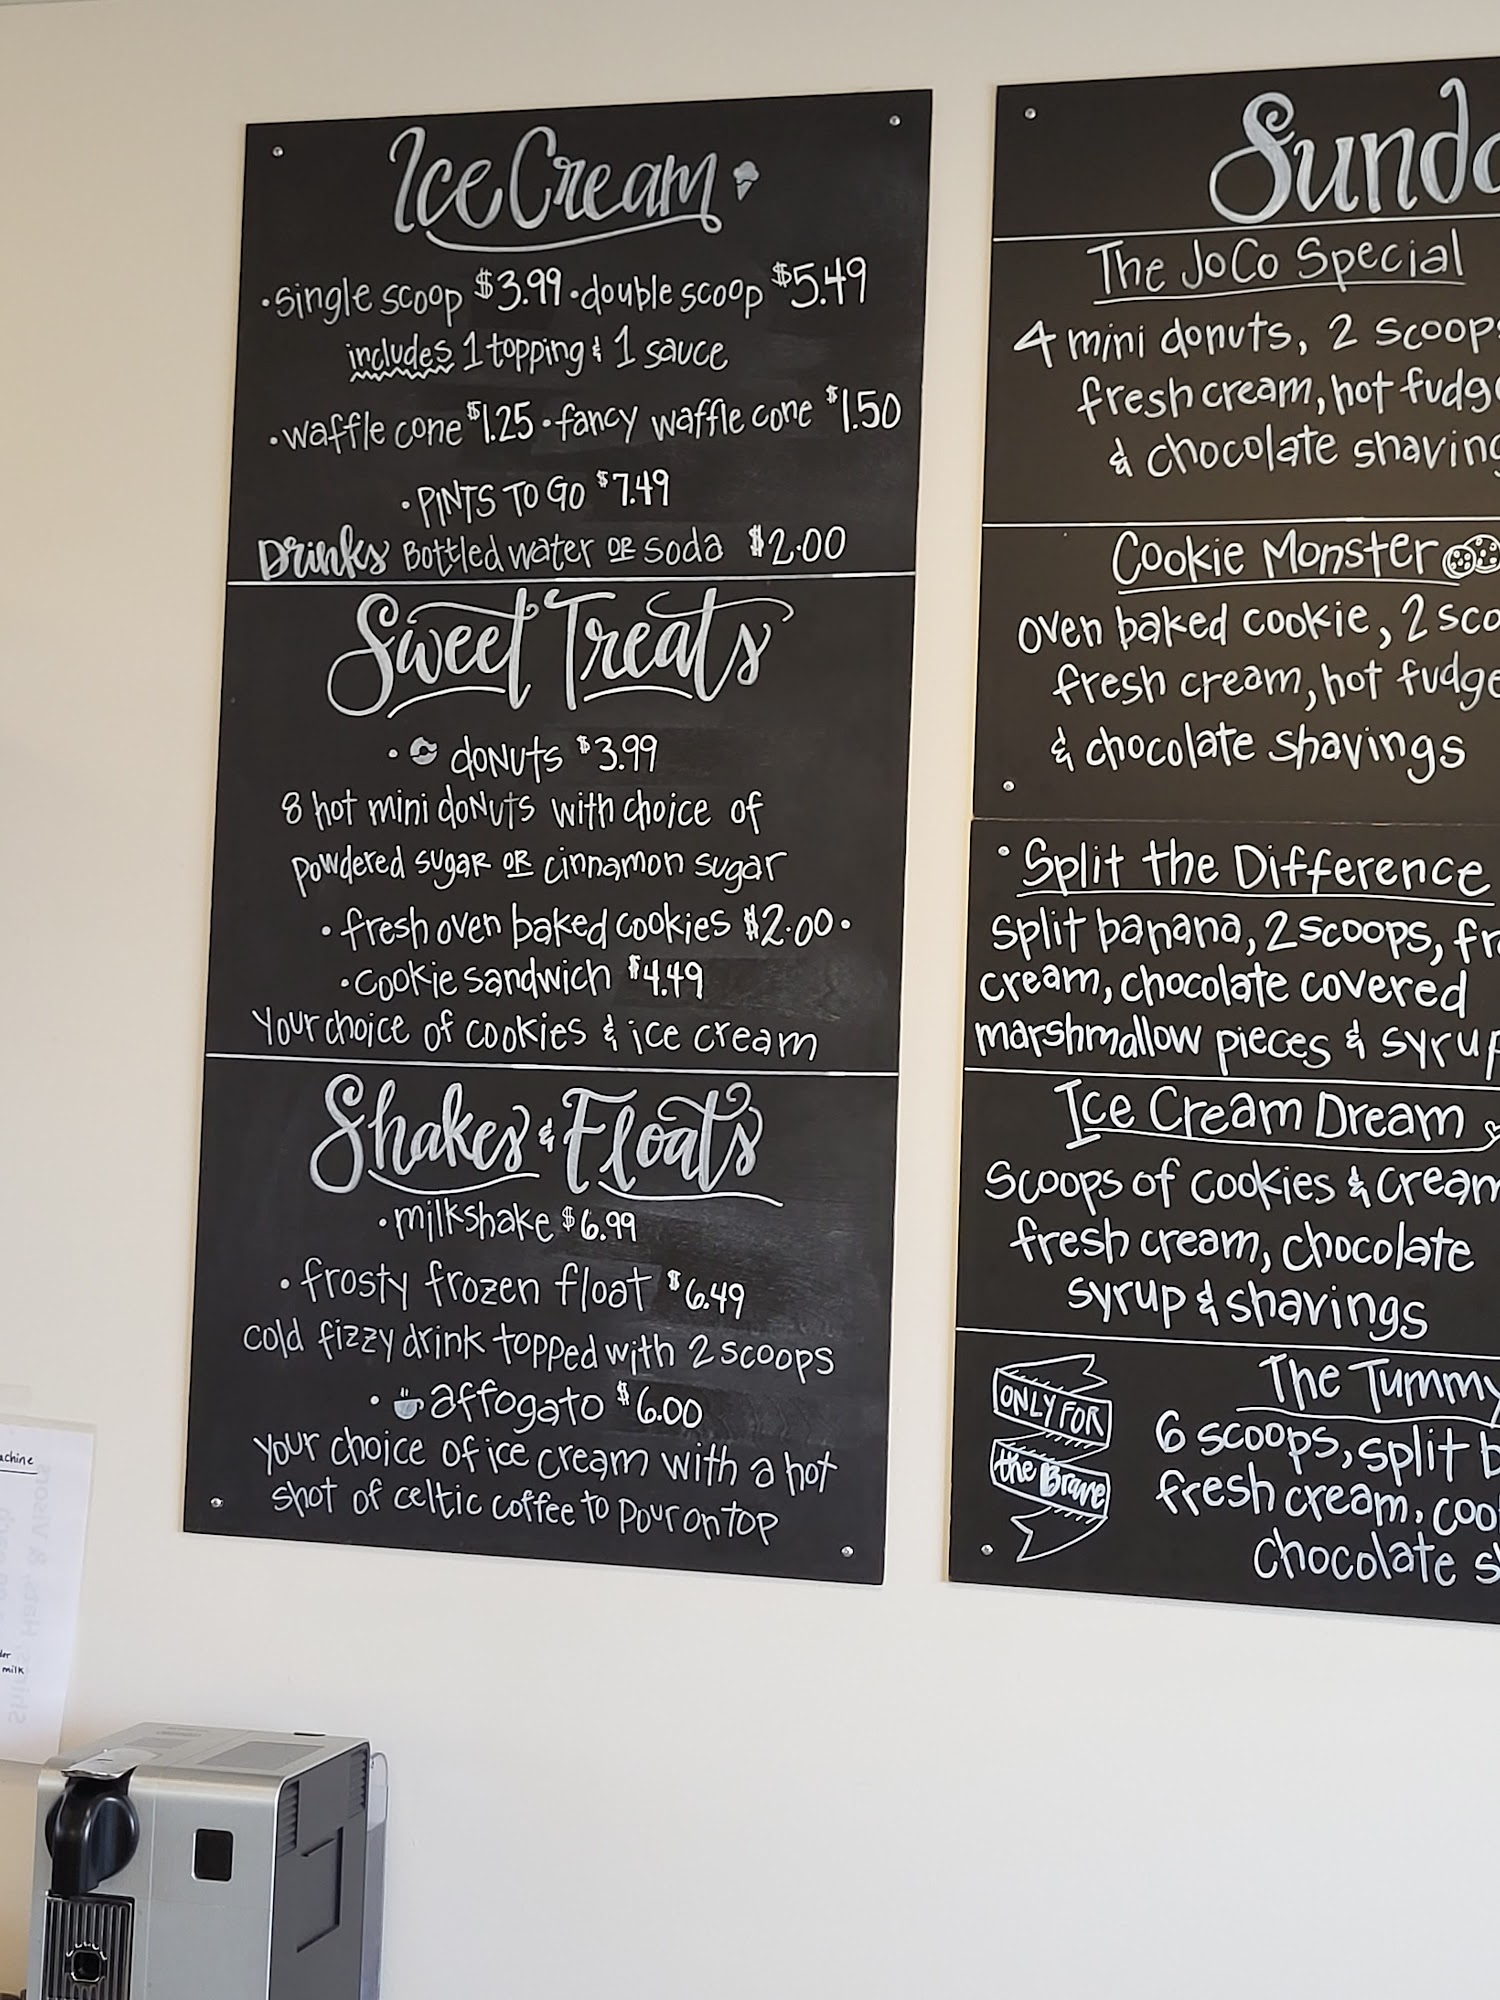 Ice Cream
• single scoop $3.99 • double scoop $5.49
includes 1 topping & 1 sauce
• waffle cone $1.25 • fancy waffle cone $1.50
• PINTS TO GO $7.49
Drinks Bottled water OR soda $2.00
Sweet Treats
• donuts $3.99
8 hot mini donuts with choice of
powdered sugar OR cinnamon sugar
• fresh oven baked cookies $2.00 •
• cookie sandwich $4.49
Your choice of cookies & ice cream
Shakes & Floats
• milkshake $6.99
• frosty frozen float $6.49
cold fizzy drink topped with 2 scoops
• affogato $6.00
your choice of ice cream with a hot
shot of celtic coffee to pour on top
The JoCo Special
4 mini donuts, 2 scoops
fresh cream, hot fudge
& chocolate shaving
Cookie Monster
oven baked cookie, 2 sco
fresh cream, hot fudge
& chocolate shavings
Split the Difference
Split banana, 2 scoops, fr
cream, chocolate covered
marshmallow pieces & syrup
Ice Cream Dream
Scoops of cookies & cream
fresh cream, chocolate
syrup & shavings
ONLY FOR
the Brave
The Tummy
6 scoops, split b
fresh cream, coo
chocolate s
milk